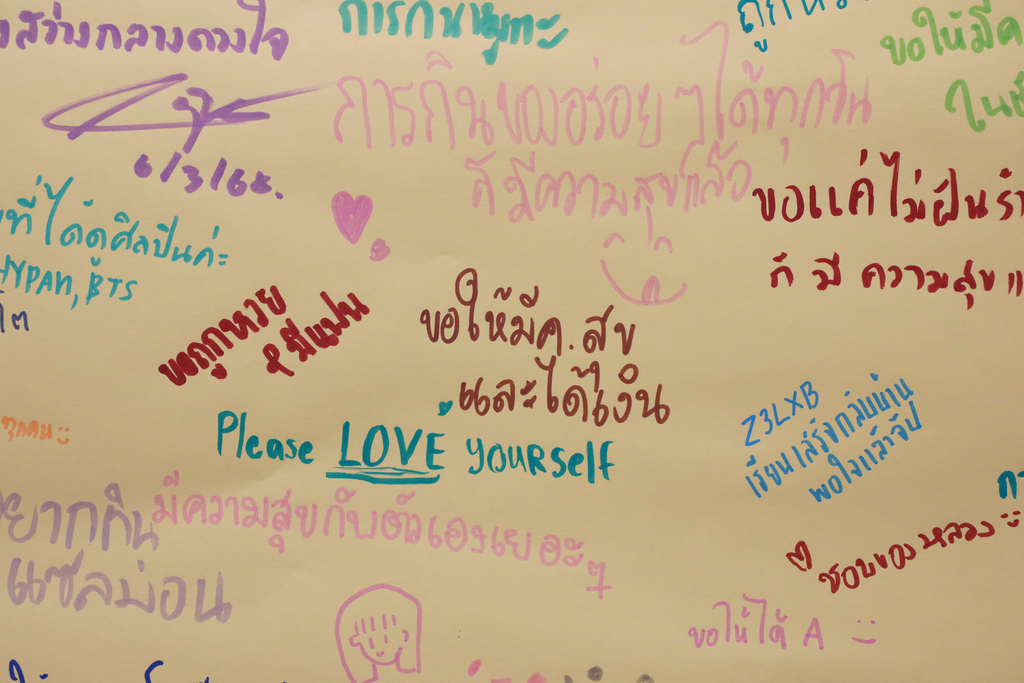 สว่างกลางดวงใจ
6/3/65.
การกินหมูกะทะ
ขอให้มี
การกินของอร่อยๆได้ทุกวัน
ก็มีความสุขแล้ว
ที่ได้ดูศิลปินค่ะ
BTS
ขอแค่ไม่ฝันร้
ก็มีความสุข
ขอถูกหวย
& มีแฟน
ขอให้มีค.สุข
และได้เงิน
ทุกคน
Please LOVE yourself
Z3LXB
เรียนเสร็จกลับบ้าน
พอใจแล้วจ๊ป
มีความสุขกับตัวเองเยอะๆ
อยากกิน
แซลม่อน
ชอบของหลวง
ขอให้ได้ A